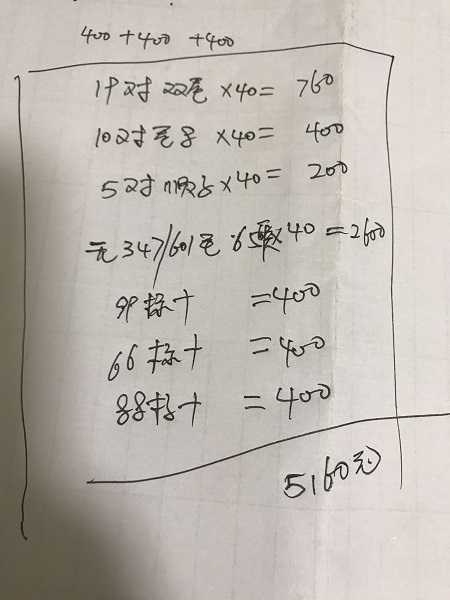 400+400+400
19对双尾×40=760
10对尾号×40=400
5对顺子×40=200
无347/601尾 65张×40=2600
99 =400
66 =400
88 =400
5160元